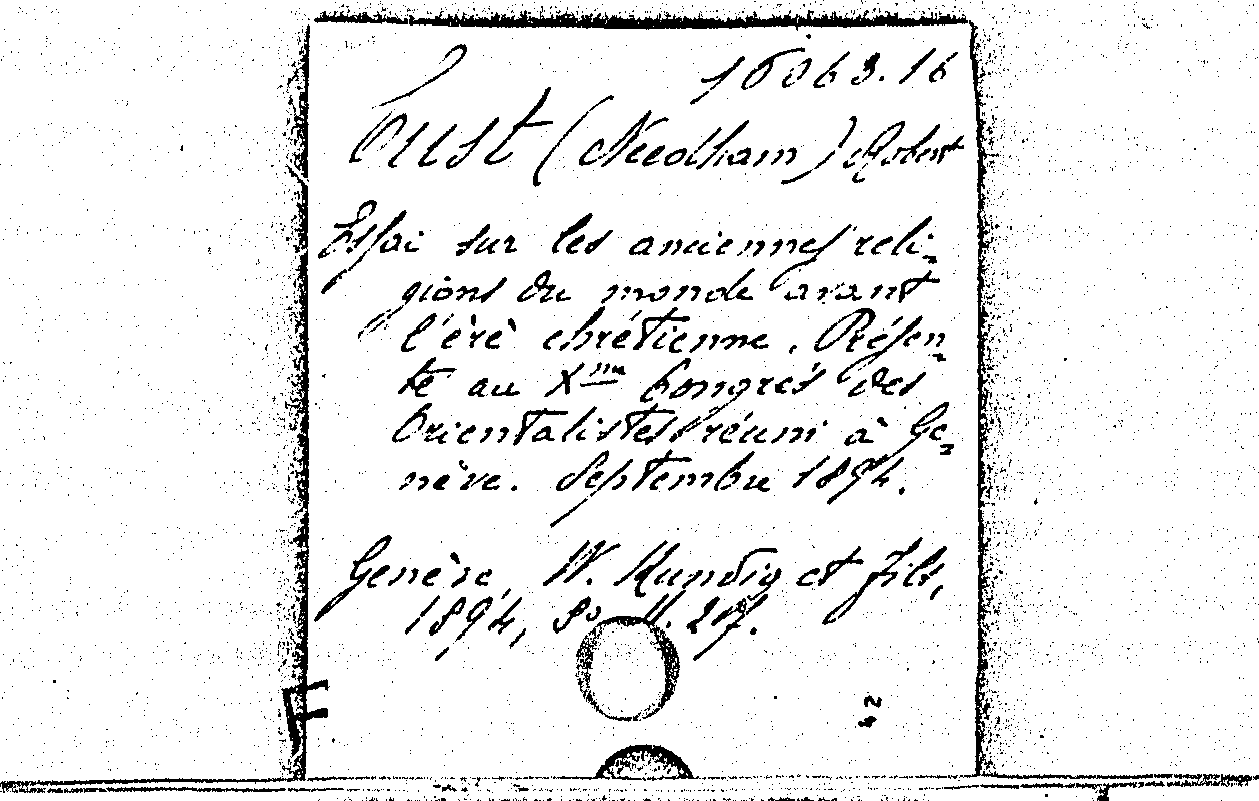 16063.16
Cust (Needham) Robert
Essai sur les anciennes reli-
gions du monde avant
l'ère chrétienne. Présen-
té au Xme Congrès des
Orientalistes réuni à Ge-
nève. Septembre 1894.
Genève, W. Kundig et fils,
1894, 8º 217.
F
42